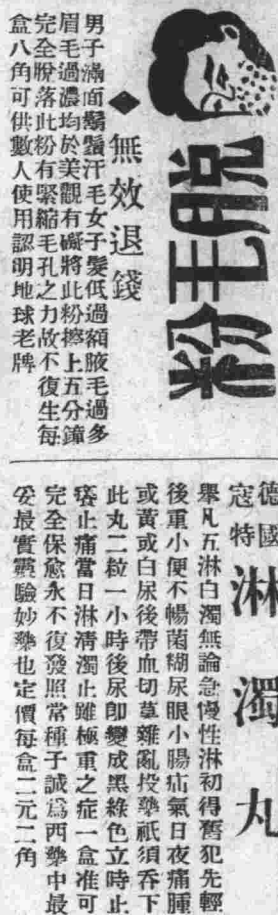 脫毛粉
◆無效退錢
男子滿面鬍鬚汗毛女子髮低過額腋毛過多
眉毛過濃均於美觀有礙將此粉擦上五分鐘
完全脫落此粉有緊縮毛孔之力故不復生每
盒八角可供數人使用認明地球老牌
德國
寇特
淋濁丸
舉凡五淋白濁無論急慢性淋初得舊犯先輕
後重小便不暢菌糊尿眼小腸疝氣日夜痛腫
或黃或白尿後帶血切莫雜亂投藥祇須吞下
此丸二粒一小時後尿卽變成黑綠色立時止
癢止痛當日淋清濁止雖極重之症一盒准可
完全保愈永不復發照常種子誠爲西藥中最
妥最實靈驗妙藥也定價每盒二元二角